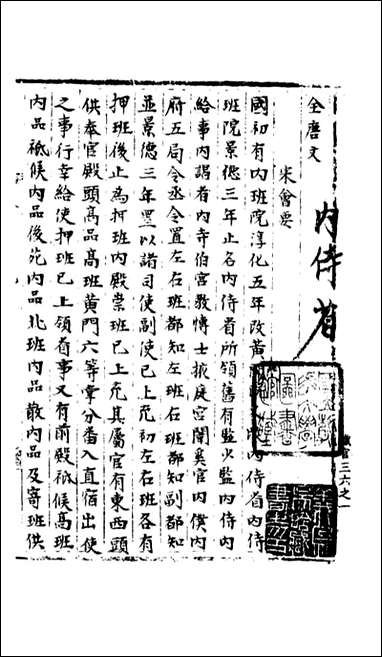 全唐文
宋會要
內侍省
國初有內班院淳化五年改黃 內侍省內侍
班院景德三年止名內侍省所領舊有監火監內侍內
給事內謁者內寺伯宮敎博士掖庭宮闈奚官內僕內
府五局令丞今置左右班都知左班右班都知副都知
並景德三年置以諸司使副使已上充初左右班各有
押班後止為 班內殿崇班已上充其屬官有東西頭
供奉官殿頭高品高班黃門六等掌分番入直宿出使
之事行幸給使押班已上領省事又有前殿祗候高班
內品祗候內品後苑內品北班內品散內品及寄班供
職官三六之一